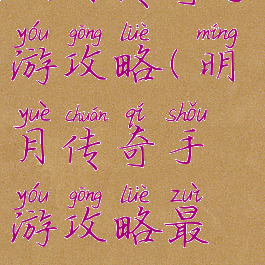 yóu gōng lüè míng
游攻略(明
yuè chuán qí shǒu
月传奇手
yóu gōng lüè zuì
游攻略最